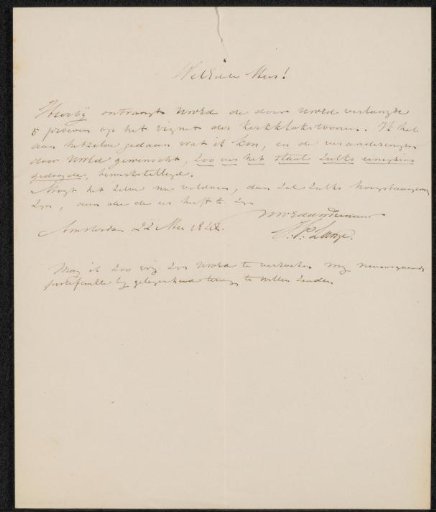 WelEdele Heer!
Hierbij ontvangt UWEd de door UWEd verlangde
8 proeven op het vignet der Kerkklokketoorn. Ik heb
aan hetzelve gedaan wat ik kon, en de veranderingen
door UWEd gewenscht, zoo ver het Staal zulks eenigzins
gedoogde, bewerkstelligd.
Mogt het zelve nu voldoen, dan zal zulks hoogst aangenaam
zijn, aan die de eer heeft te zijn
UWEd dw Dienaar
Amsterdam 22 Mei 18
Lange.
Mag ik zoo vrij zijn UWEd te verzoeken mij
portefeuille bij gelegenheid terug te willen zenden